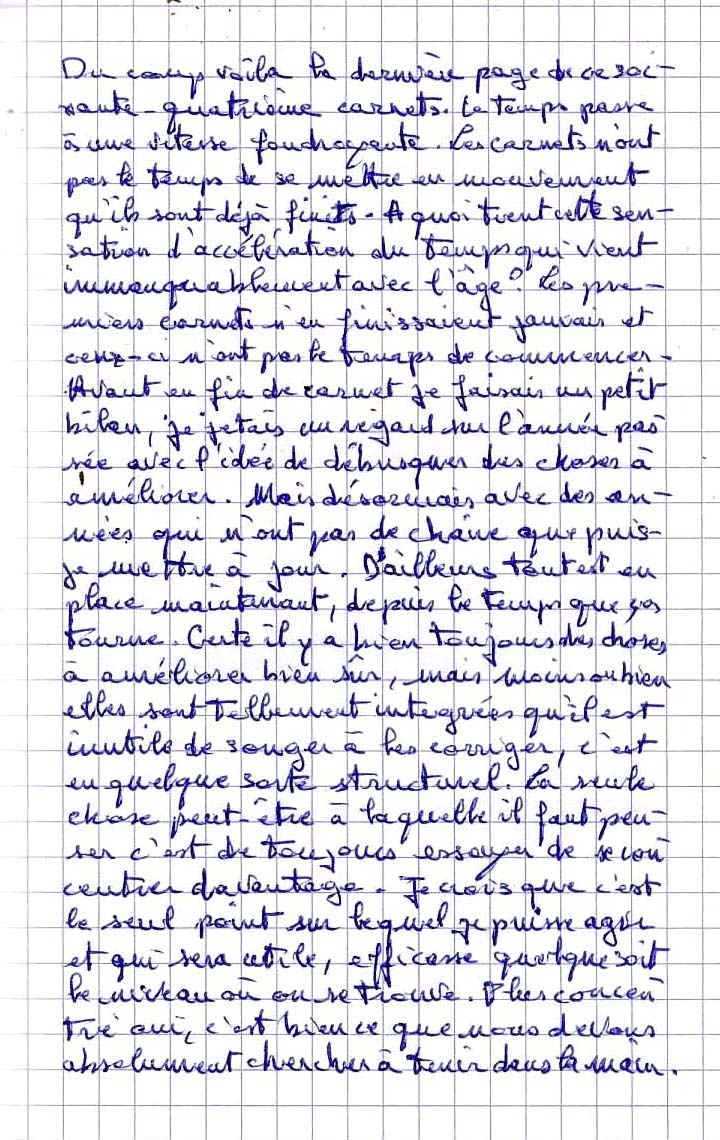 Du coup voilà la dernière page de ce soi-
xante-quatrième carnets. Le temps passe
à une vitesse foudroyante. Les carnets n'ont
pas le temps de se mettre en mouvement
qu'ils sont déjà finits. A quoi tient cette sen-
sation d'accélération du temps qui vient
immanquablement avec l'âge? Les pre-
miers carnets n'en finissaient jamais et
ceux-ci n'ont pas le temps de commencer.
Avant en fin de carnet je faisais un petit
bilan, je jetais un regard sur l'année pas
sée avec l'idée de débusquer des choses à
améliorer. Mais désormais avec des an-
nées qui n'ont pas de chaîne que puis-
je mettre à jour. D'ailleurs tout est en
place maintenant, depuis le temps que ças
tourne. Certe il y a bien toujours des choses
à améliorer bien sûr, mais moins ou bien
elles sont tellement integrées qu'il est
inutile de songer à les corriger, c'est
en quelque sorte structurel. La seule
chose peut-être à laquelle il faut pen-
ser c'est de toujours essayer de se con
centrer davantage. Je crois que c'est
le seul point sur lequel je puisse agir
et qui sera utile, efficasse quelque soit
le niveau où on se trouve. Plus concen
tré oui, c'est bien ce que nous devons
absolument chercher à tenir dans la main.